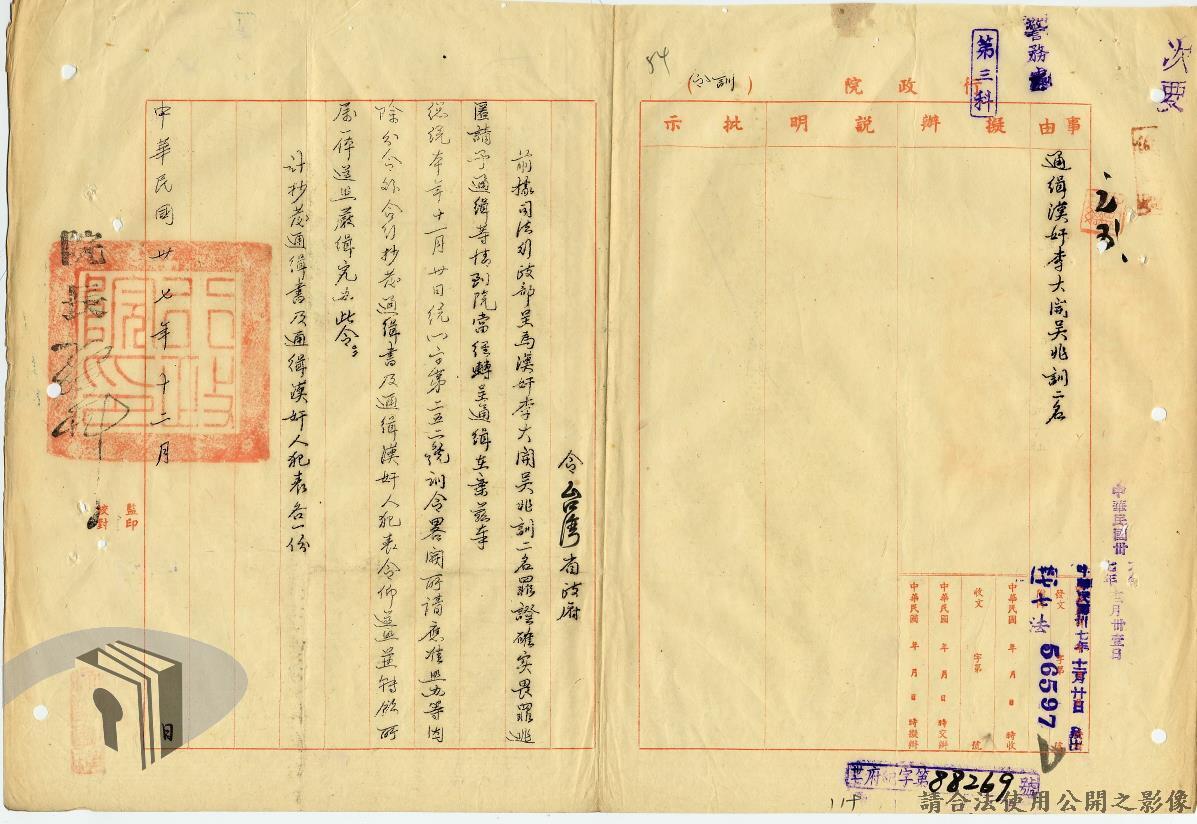 次要
警務處
第三科
行政院
（訓令）
54
事由
擬辦
說明
批示
通緝漢奸李大開吳兆訓二名
中華民國卅七年十二月卅壹日
中華民國卅七年十二月廿日發出
發文
字第
號
七法 56597
中華民國 年 月 日 時收
收文 字第 號
中華民國 年 月 日 時交辦
中華民國 年 月 日 時擬辦
府 字第88269號
令台灣省政府
前據司法行政部呈為漢奸李大開吳兆訓二名罪證確實畏罪逃
匿請予通緝等情到院當經轉呈通緝在案茲奉
總統本年十一月廿日統一字第二五二號訓令畧開所請應准照辦等因
除分令外合行抄發通緝書及通緝漢奸人犯表令仰遵照並轉飭所
屬一体遵照嚴緝究辦此令
計抄發通緝書及通緝漢奸人犯表各一份
院長孫科
中華民國卅七年十二月 日
監印
校對
請合法使用公開之影像